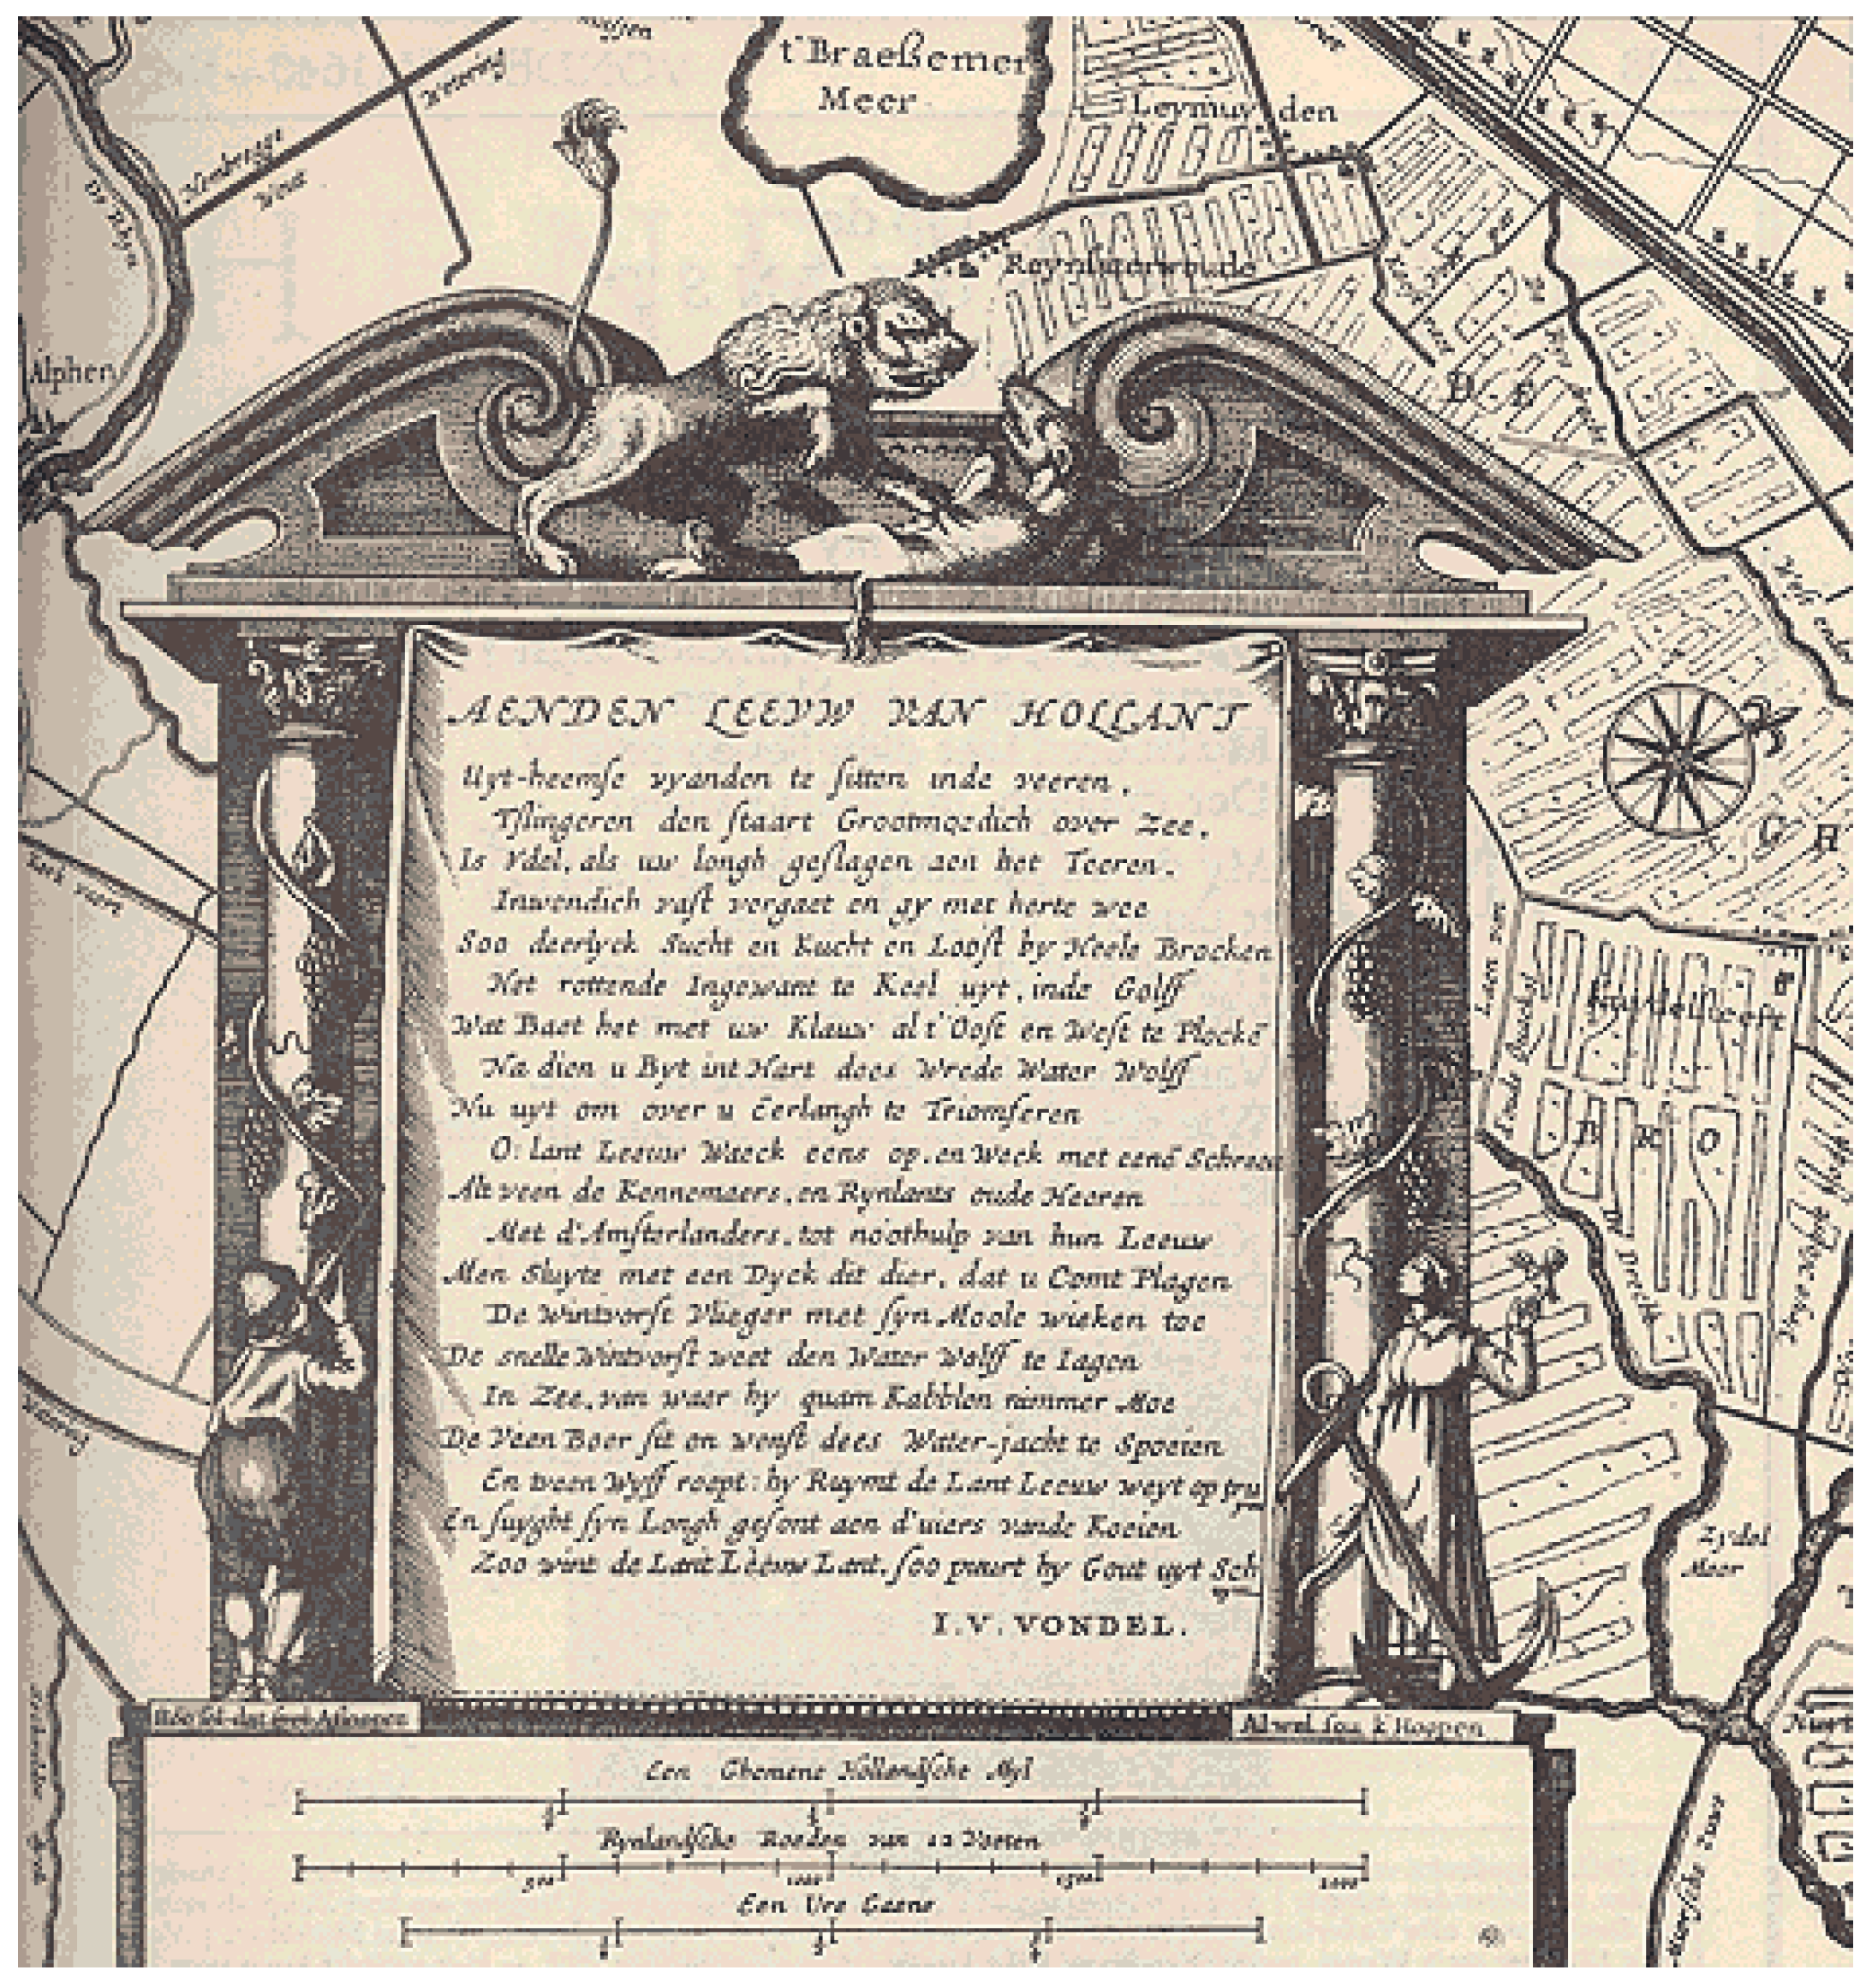 t'Braeßemer
Meer
Leymuyden
Wetering
Heymbergge
Vaert
Alphen
Reynsaterwoude
D E
G H
AENDEN LEEVW VAN HOLLANT
Uyt-heemse vyanden te sitten inde veeren,
Tslingeren den staart Grootmoedich over Zee,
Is Ydel, als uw longh geslagen aen het Teeren,
Inwendich vast vergaet en gy met herte wee
Soo deerlyck Sucht en Kucht en Loost by Heele Brocken
Het rottende Ingewant te Keel uyt, inde Golff
Wat Baet het met uw Klauw al t'Oost en West te Plockē
Na dien u Byt int Hart dees Wrede Water Wolff
Nu uyt om over u Eerlangh te Triomferen
O: lant Leeuw Waeck eens op, en Weck met eenē Schreeu
Alt veen de Kennemaers, en Rynlants oude Heeren
Met d'Amsterlanders, tot noothulp van hun Leeuw
Men Sluyte met een Dyck dit dier, dat u Comt Plagen
De Wintvorst Vlieger met syn Moole wieken toe
De snelle Wintvorst weet den Water Wolff te Iagen
In Zee, van waer hy quam Kabblen nimmer Moe
De Veen Boer sit en wenst dees Water-jacht te Spoeien
En tveen Wyff roept: hy Ruymt de Lant Leeuw weyt op
En suyght syn Longh gesont aen d'uiers vande Koeien
Zoo wint de Lant Leeuw Lant, soo puurt hy Gout uyt
I.V. VONDEL.
Laen van
Oude
B R O
Drecht
Zydel
Meer
Al wel sou 't Hoopen
Een Ghemene Hollandsche Myl
Rynlandsche Roeden van 12 Voeten
500 1000 1500 2000
Een Ure Gaens